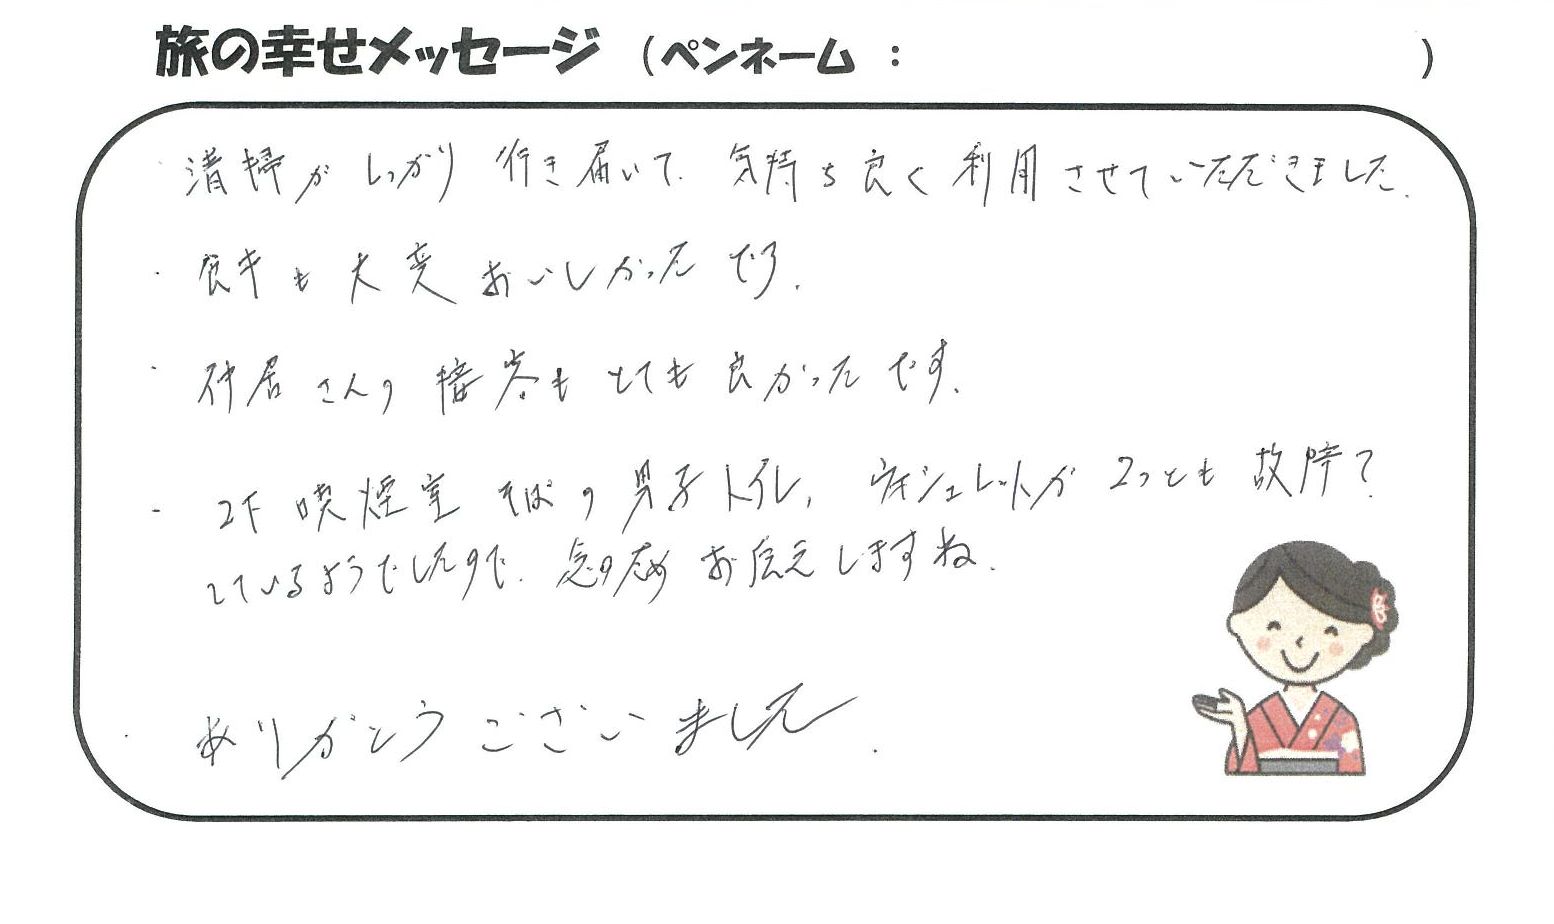 旅の幸せメッセージ (ペンネーム : )
・清掃がしっかり行き届いて、気持ち良く利用させていただきました。
・食事も大変おいしかったです。
・仲居さんの接客もとても良かったです。
・2F 喫煙室そばの男子トイレ、ウォシュレットが2つとも故障?
しているようでしたので、念のためお伝えしますね。
・ありがとうございました。